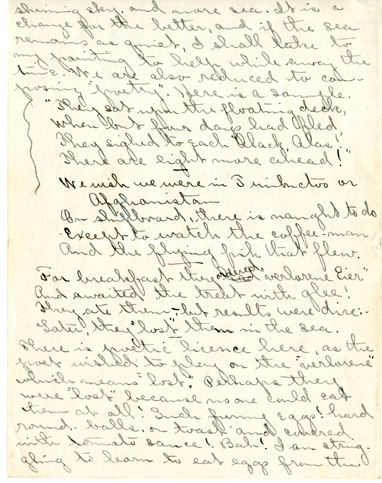 shining sky, and more sea. It is a
change for the better, and if the sea
remains as quiet, I shall take to
my painting to help while away the
time. We are also reduced to com-
posing "poetry". Here is a sample.
"They sat upon the floating deck,
When but four days had fled
They sighed to each "Alack, Alas!
There are eight more ahead!"
We wish we were in Timbuctoo or
Afghanistan
On shipboard, there is naught to do
Except to watch the coffee-man
And the flying fish that flew.
For breakfast they served "verlorene Eier"
And awaited the treat with glee!
They ate them—but results were dire:-
Later, they "lost" them in the sea.
There is poetic licence here, as the
poet wished to play on the "verlorene"
which means "lost". Perhaps they
were "lost" because no one could eat
them at all! Such funny eggs! hard
round balls, on toast and covered
with tomato sauce! Bah! I am strug-
gling to learn to eat eggs from the